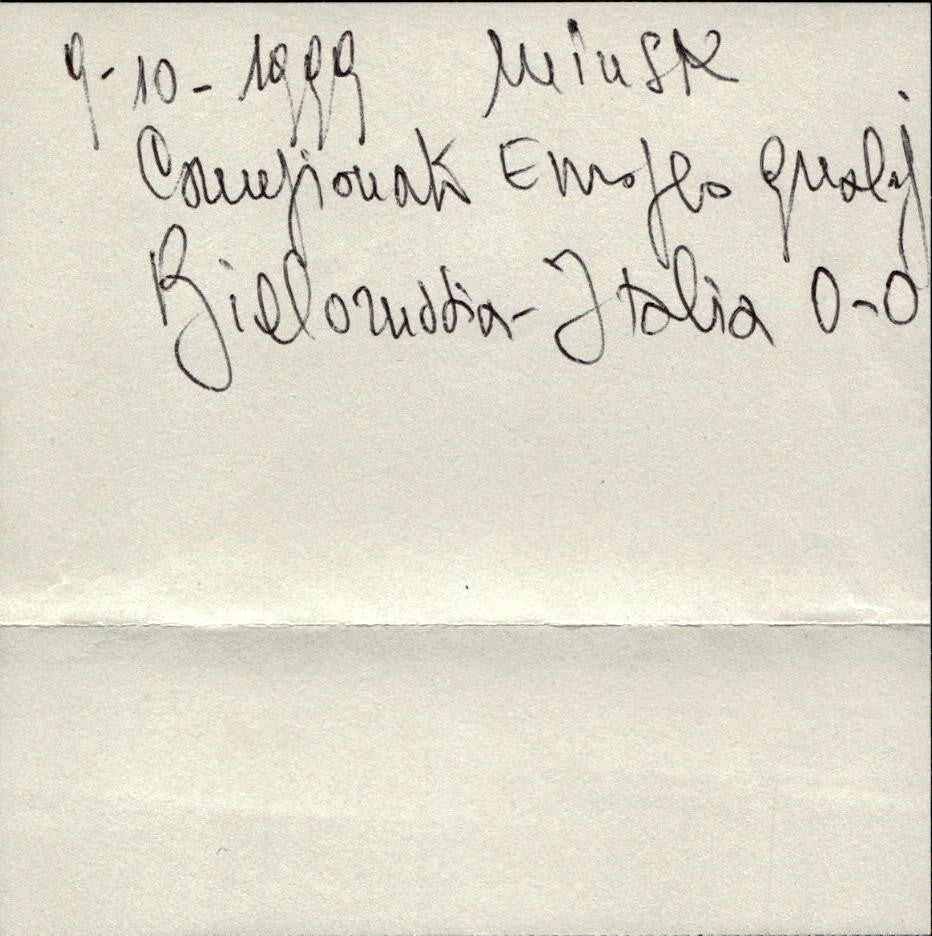 9-10-1999 Minsk
Campionati Europeo qualif
Bielorussia-Italia 0-0